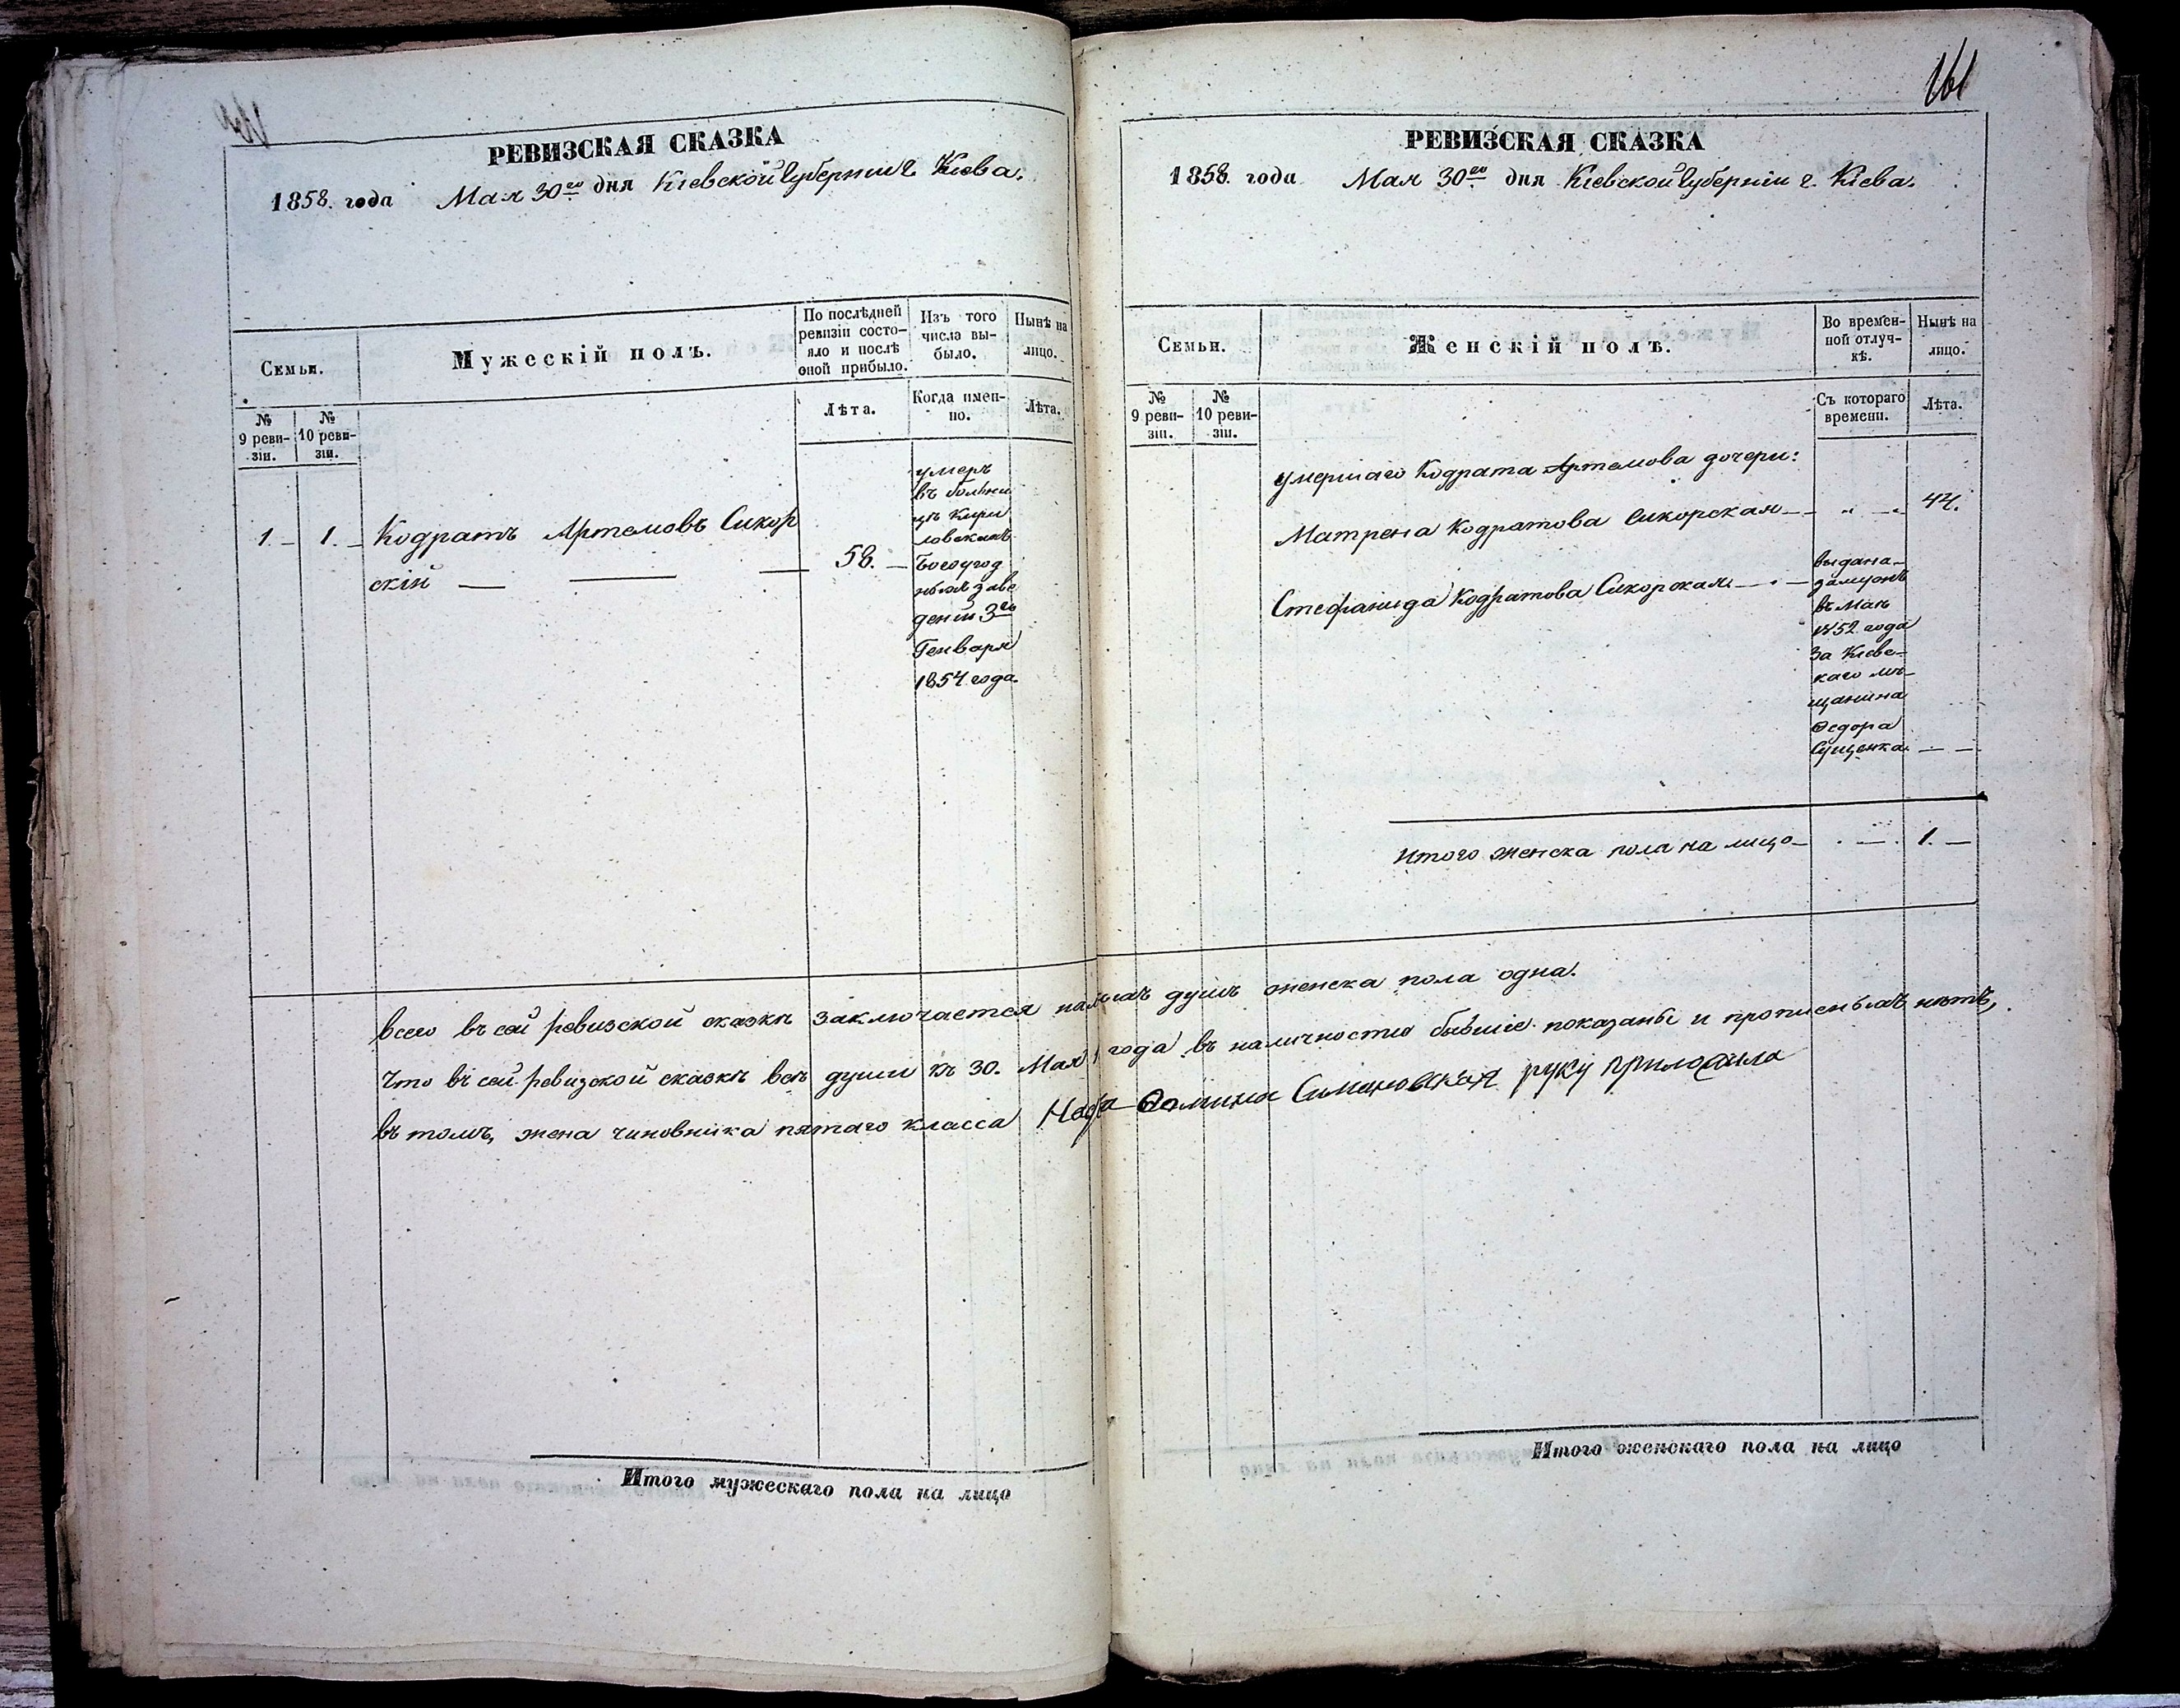 РЕВИЗСКАЯ СКАЗКА
1858. года Мая 30го дня Кіевской Губерніи г. Кіева.
Семьи.
Мужескій полъ.
По послѣдней
ревизіи состо-
яло и послѣ
оной прибыло.
Изъ того
числа вы-
было.
Нынѣ на
лицо.
№
9 реви-
зіи.
№
10 реви-
зіи.
Лѣта.
Когда имен-
но.
Лѣта.
1. 1. Кодратъ Артемовъ Сикор
скій 58.
умеръ
въ больни
цѣ Кири
ловскихъ
Богоугод
ныхъ заве
деній 3го
Генваря
1854 года.
161
РЕВИЗСКАЯ СКАЗКА
1858. года Мая 30го дня Кіевской Губерніи г. Кіева.
Семьи.
Женскій полъ.
Во времен-
ной отлуч-
кѣ.
Нынѣ на
лицо.
№
9 реви-
зіи.
№
10 реви-
зіи.
Съ котораго
времени.
Лѣта.
умершаго Кодрата Артемова дочери:
Матрена Кодратова Сикорская 44.
Стефанида Кодратова Сикорская
выдана
замужъ
въ Маѣ
1852 года
за Кіевс-
каго мѣ-
щанина
Ѳедора
Сущенка.
Итого женска пола на лицо 1.
всего въ сей ревизской сказкѣ заключается налицо душъ женска пола одна.
Что въ сей ревизской сказкѣ всѣ души къ 30. Мая года въ наличностію бывшіе показаны и прописныхъ нѣтъ,
въ томъ, жена чиновника пятаго класса руку приложила
Итого мужескаго пола на лицо
Итого женскаго пола на лицо